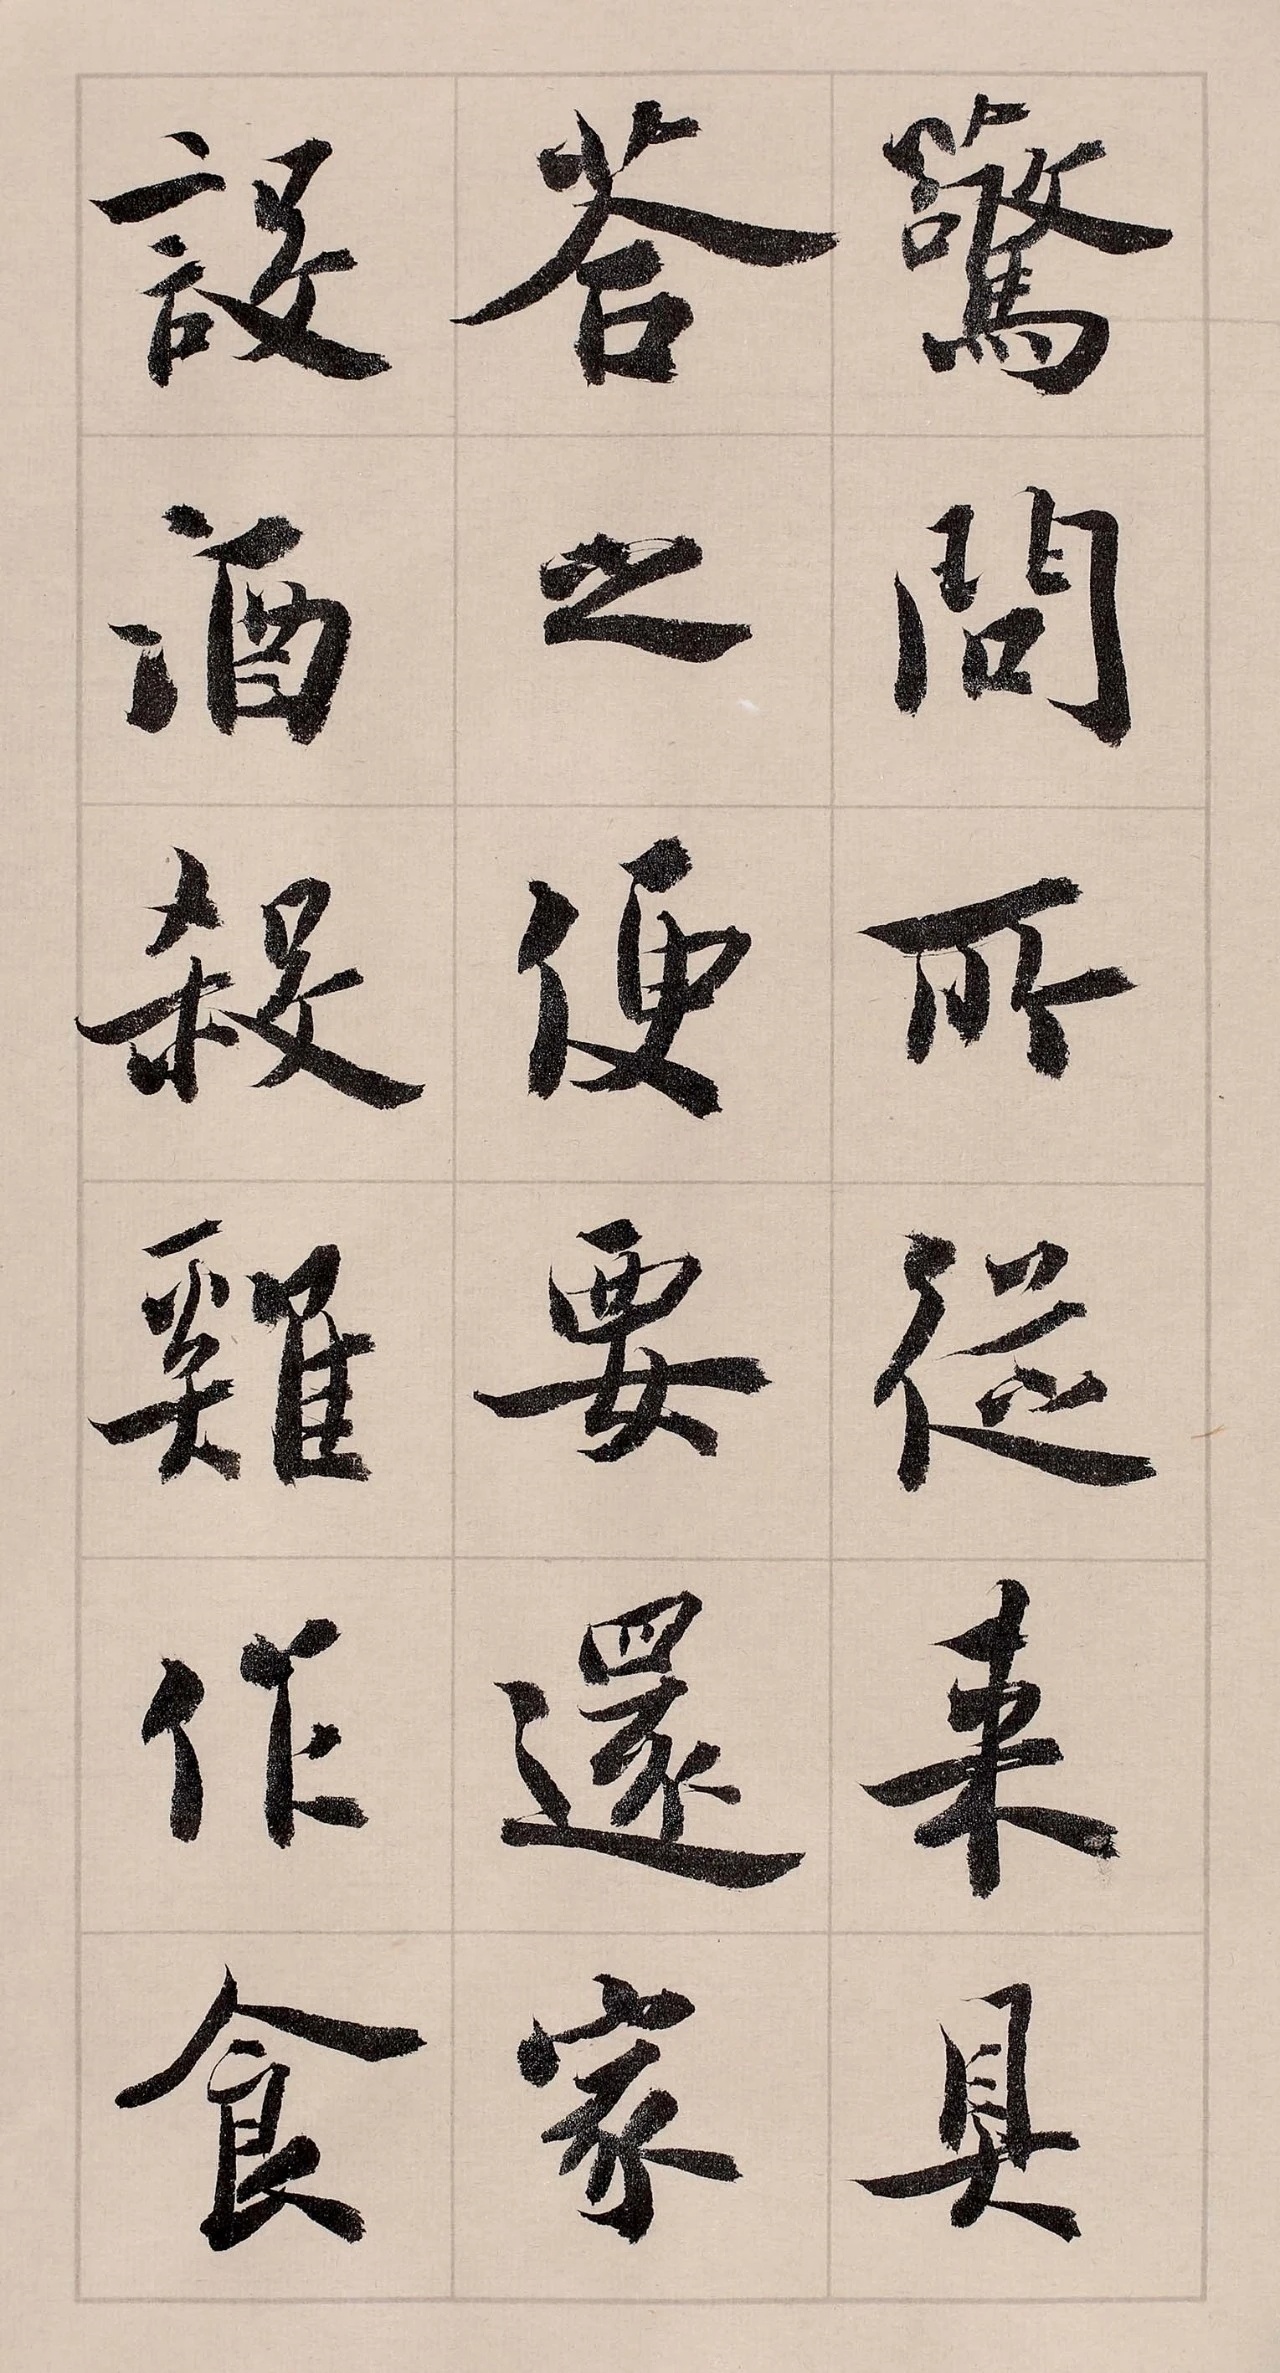 驚問所從来具
荅之便要還家
設酒殺雞作食